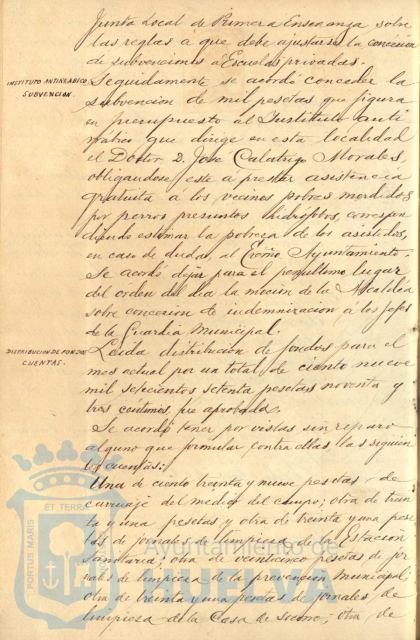 Junta Local de Primera Enseñanza sobre
las reglas á que debe ajustarse la concesion
de subvenciones á Escuelas privadas.
INSTITUTO ANTIRRABICO
SUBVENCION.
Seguidamente se acordó conceder la
subvencion de mil pesetas que figura
en presupuesto al Instituto anti
rrabico que dirige en esta localidad
el Doctor D. Jose Calatrigo Morales,
obligandose este a prestar asistencia
gratuita a los vecinos pobres mordidos
por perros presuntos hidrófobos, correspon
diendo estimar la pobreza de los asistidos,
en caso de dudas, al Excmo Ayuntamiento.
Se acordó dejar para el penultimo lugar
del orden del dia la mocion de la Alcaldia
sobre concesion de indemnizacion a los Jefes
de la Guardia Municipal.
DISTRIBUCION DE FONDOS
CUENTAS.
Leida distribucion de fondos para el
mes actual por un total de ciento nueve
mil setecientos setenta pesetas noventa y
tres centimos fue aprobada.
Se acordó tener por vistas sin reparo
alguno que formular contra ellas las siguien
tes cuentas:
Una de ciento treinta y nueve pesetas, de
carruaje del medico del campo; otra de trein
ta y una pesetas y otra de treinta y una pese
tas de jornales de limpieza de la Estacion
Sanitaria; otra de veinticinco pesetas de jor
nales de limpieza de la prevencion municipal;
otra de treinta y una pesetas de jornales de
limpieza de la Casa de socorro; otra de
PORTUS MARIS
ET TERRAE
Ayuntamiento de
HUELVA